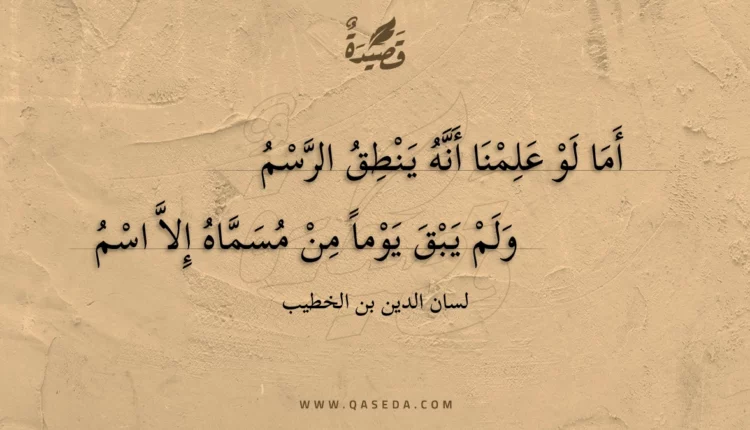 قَصِيدَةٌ
أَمَا لَوْ عَلِمْنَا أَنَّهُ يَنْطِقُ الرَّسْمُ
وَلَمْ يَبْقَ يَوْماً مِنْ مُسَمَّاهُ إِلاَّ اسْمُ
لسان الدين بن الخطيب
WWW.QASEDA.COM